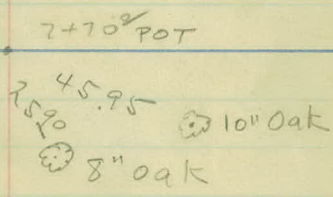 7+70 POT
45.95
2590
10" Oak
8" Oak